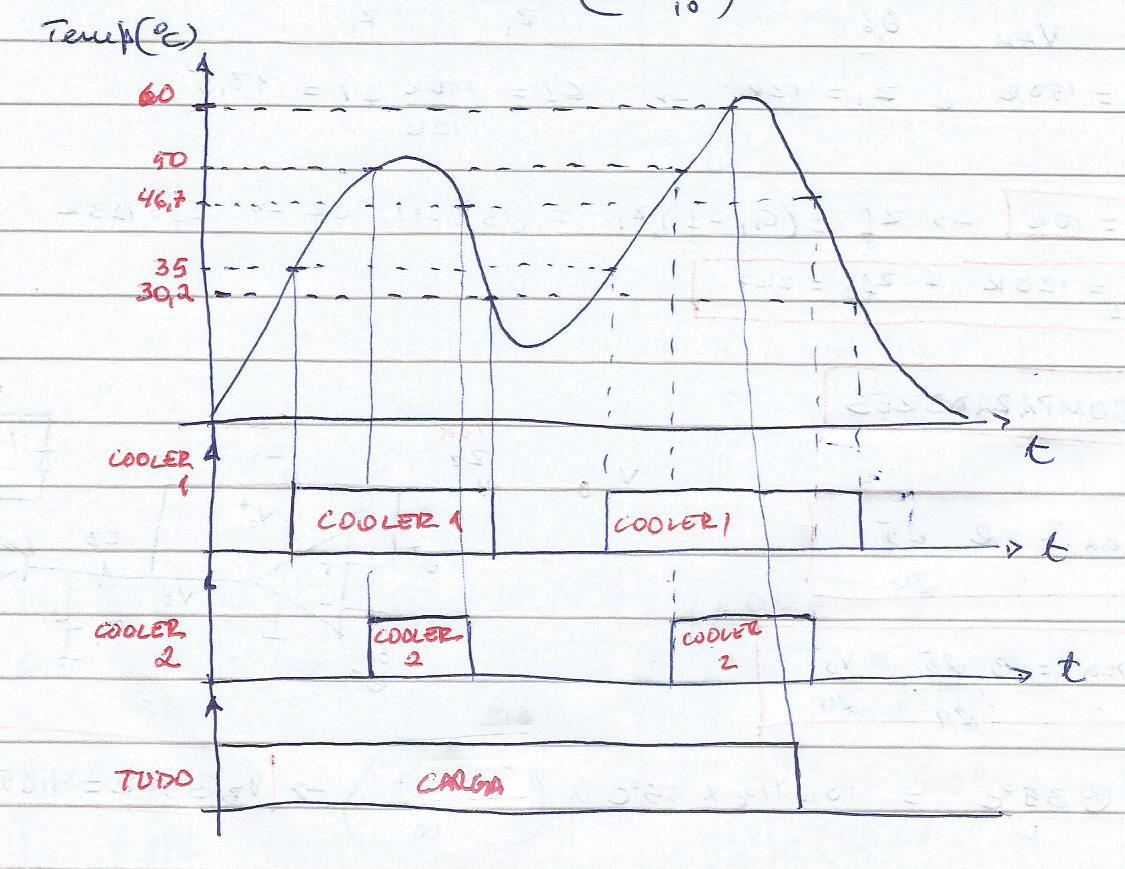 10
Temp(°C)
60
50
46,7
35
30,2
t
COOLER
1
COOLER 1
COOLER 1
t
COOLER
2
COOLER
2
COOLER
2
t
TUDO
CARGA